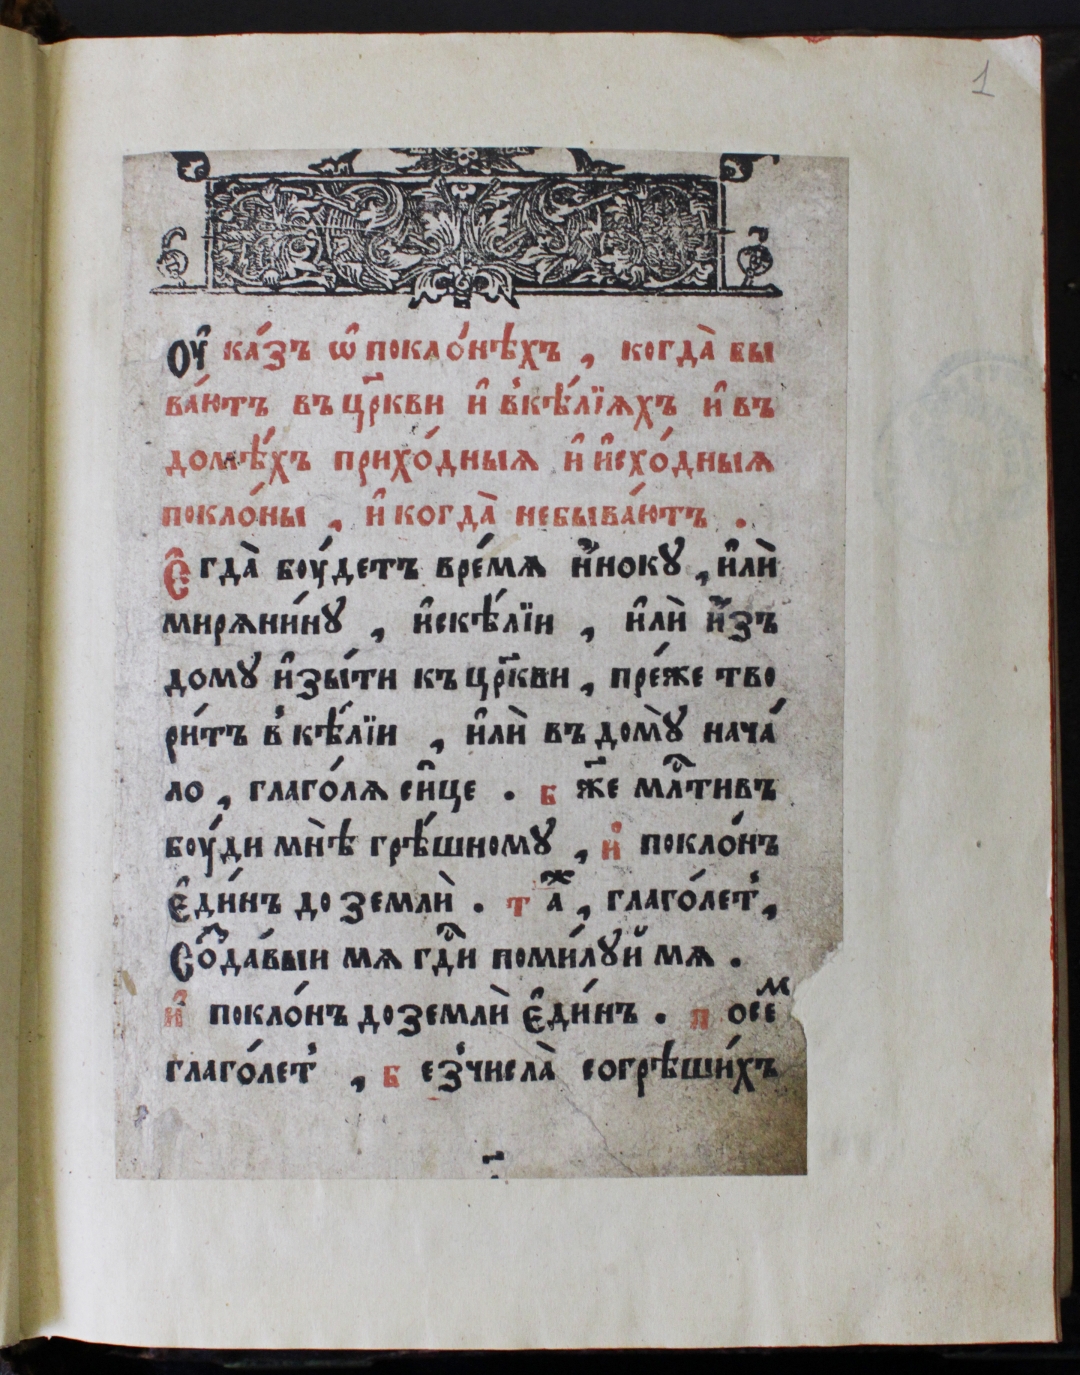 1
Оу҆ка́зъ ѡ҆ покло́нѣхъ , когда̀ бы
ва́ютъ въ цр҃кви и҆ в'ке́лїѧхъ и҆ въ
домѣ́хъ прихо́дныѧ и҆ и҆схо́дныѧ
покло́ны , и҆ когда̀ небыва́ютъ .
Є҆гда̀ бꙋ́детъ вре́мѧ и҆́ноку , и҆лѝ
мирѧни́ну , и҆скѣ́лїи , и҆лѝ и҆́зъ
дому и҆зы́ти къ цр҃кви , пре́же тво
ри́тъ в'кѣ́лїи , и҆лѝ въ дом̀у нача́
ло , глаго́лѧ си́це . бж҃е млⷭ҇тивъ
бꙋ́ди мнѣ̀ грѣ́шному , и҆ покло́нъ
є҆ди́нъ до землѝ . таⷤ , глаго́лет' ,
Соⷥда́выи мѧ гдⷭ҇и поми́луй мѧ .
и҆ покло́нъ до землѝ є҆ди́нъ . п осеⷨ
глаго́лет' , без'числа̀ согрѣши́хъ